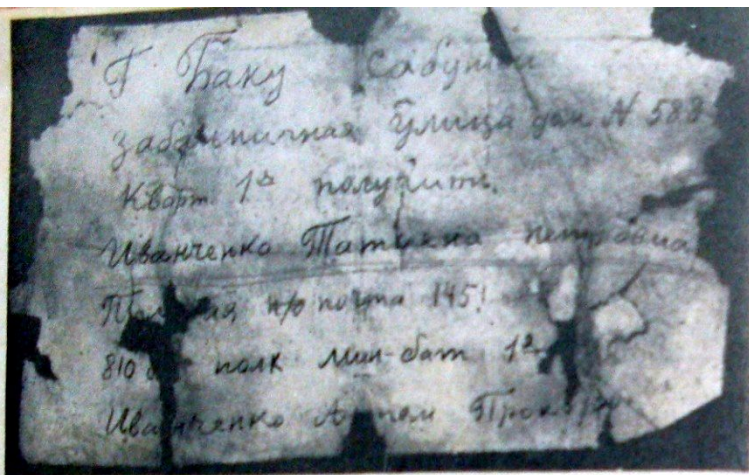 Г Баку Сабунчи
забаничная улица дом N 588
Кварт 1а получить
Иванченко Татьяна Петровна
почта 145!
810 полк мин-бат 1а
Иванченко